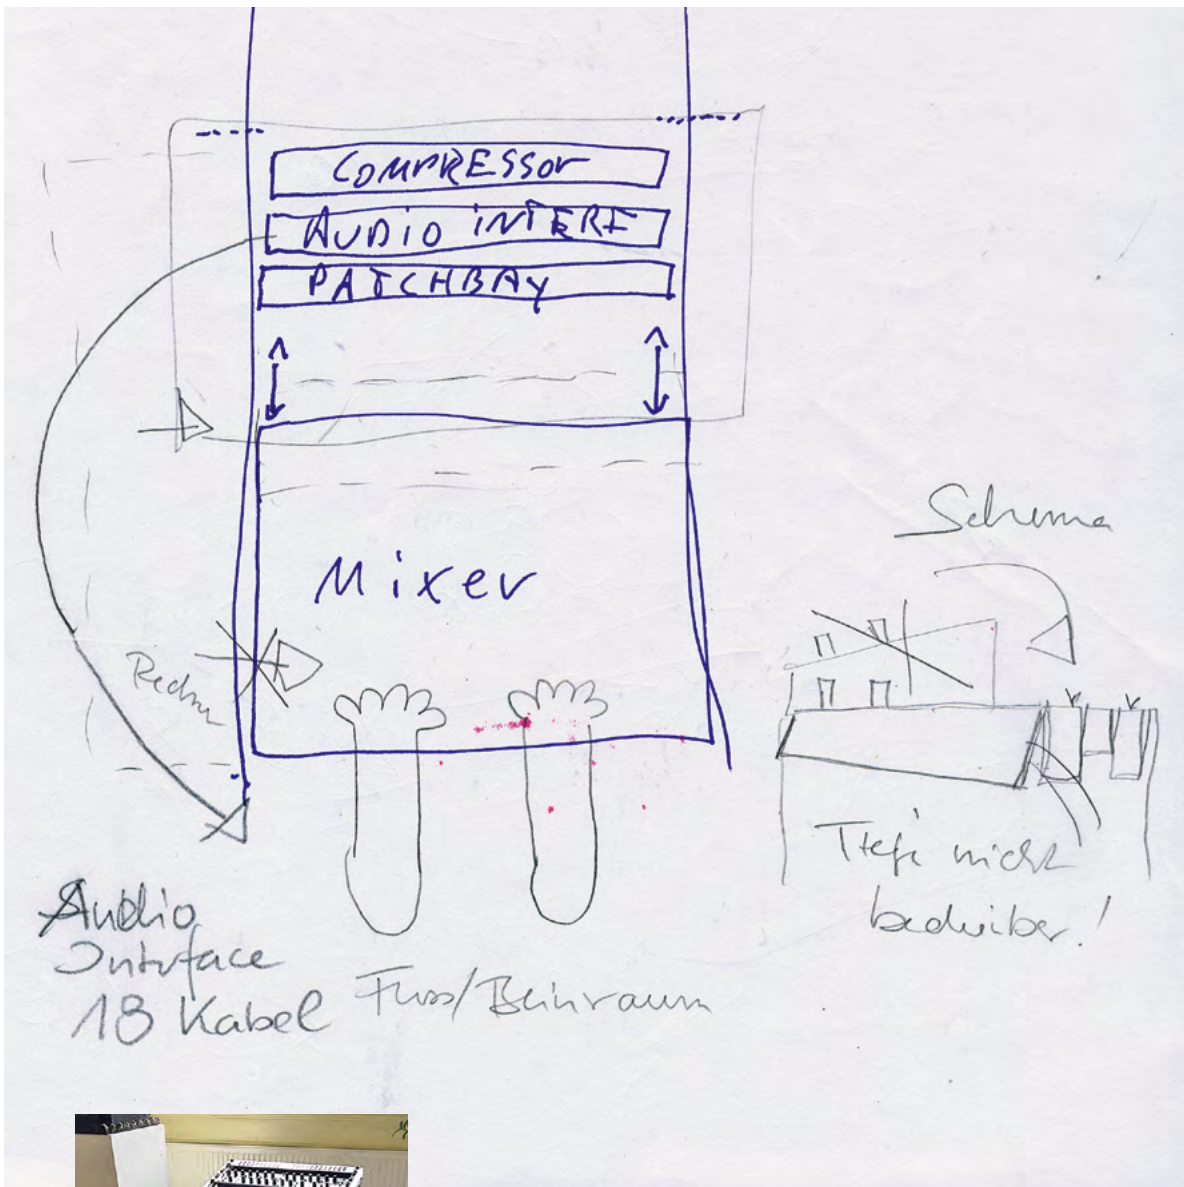 COMPRESSOR
AUDIO INTERF
PATCHBAY
Mixer
Schema
Tiefe nicht
Audio
Interface
18 Kabel
Fuss/Beinraum